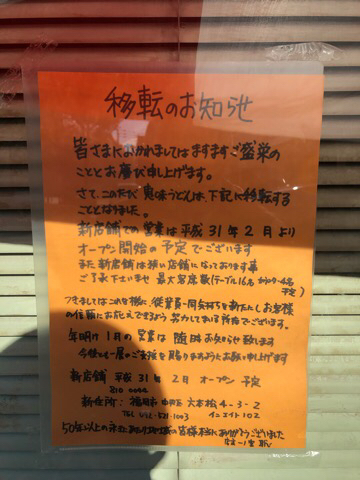 移転のお知らせ
皆さまにおかれましてはますますご盛栄の
こととお慶び申し上げます。
さて、このたび 恵味うどんは、下記に移転する
こととなりました。
新店舗での営業は平成31年2月より
オープン開始の予定でございます
また新店舗は狭い店舗になっております事
ご了承下さいませ 最大客席数(テーブル16名 カウンター4名
予定)
つきましてはこれを機に、従業員一同気持ちを新たにしお客様
の信頼にお応えできるよう 努力してまいる所存でございます。
年明け1月の営業は 随時お知らせ致します
今後とも一層のご支援を賜りますようにお願い申し上げます
新店舗 平成31年 2月 オープン 予定
810
新住所: 福岡市 中央区 大本 4-3-2
TEL 1003 102
50年以上の 皆様本当にありがとうございました